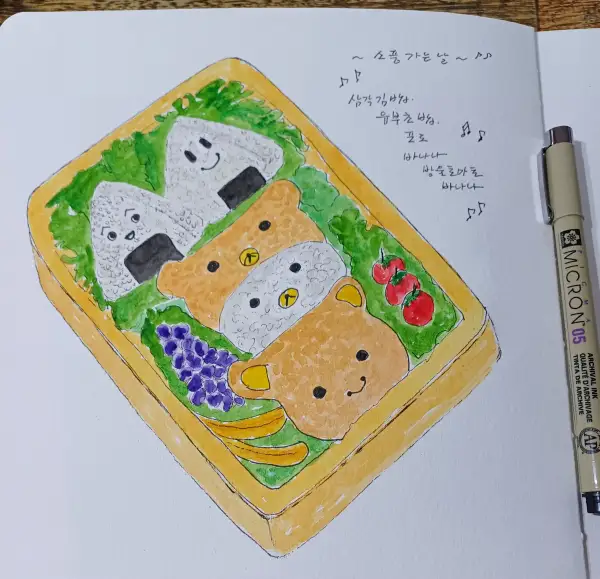 ~ 소풍 가는 날 ~ ♪♪
삼각김밥.
유부초밥.
포도
바나나
방울토마토
바나나
SAKURA
MICRON 05
ARCHIVAL INK
QUALITÉ D'ARCHIVAGE
TINTA DE ARCHIVE
AP